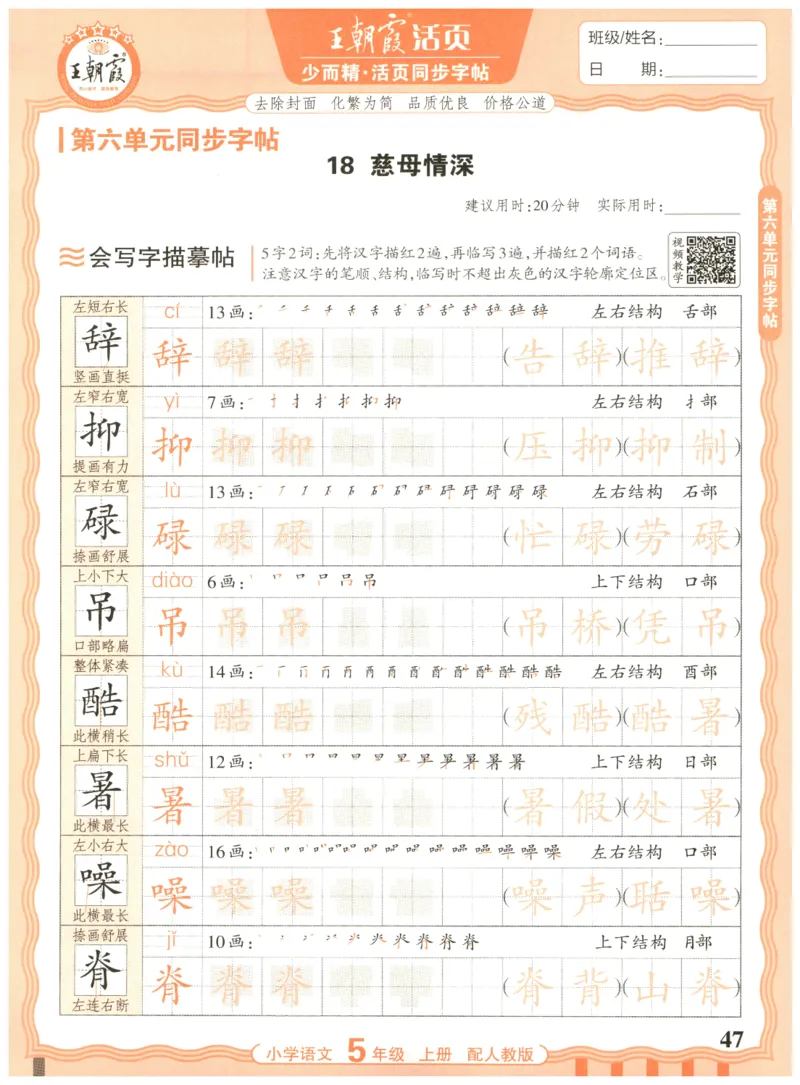 王朝霞
王朝霞®活页
少而精·活页同步字帖
班级/姓名：
日　　期：
去除封面　化繁为简　品质优良　价格公道
第六单元同步字帖
18 慈母情深
建议用时：20分钟　实际用时：
会写字描摹帖
5字2词：先将汉字描红2遍，再临写3遍，并描红2个词语。
注意汉字的笔顺、结构，临写时不超出灰色的汉字轮廓定位区。
视频教学
第六单元同步字帖
左短右长
辞
竖画直挺
cí 13画： 左右结构 舌部
辞 辞 辞 （告 辞）（推 辞）
左窄右宽
抑
提画有力
yì 7画： 左右结构 扌部
抑 抑 抑 （压 抑）（抑 制）
左窄右宽
碌
捺画舒展
lù 13画： 左右结构 石部
碌 碌 碌 （忙 碌）（劳 碌）
上小下大
吊
口部略扁
diào 6画： 上下结构 口部
吊 吊 吊 （吊 桥）（凭 吊）
整体紧凑
酷
此横稍长
kù 14画： 左右结构 酉部
酷 酷 酷 （残 酷）（酷 暑）
上扁下长
暑
此横最长
shǔ 12画： 上下结构 日部
暑 暑 暑 （暑 假）（处 暑）
左小右大
噪
此横最长
zào 16画： 左右结构 口部
噪 噪 噪 （噪 声）（聒 噪）
捺画舒展
脊
左连右断
jǐ 10画： 上下结构 月部
脊 脊 脊 （脊 背）（山 脊）
47
小学语文 5年级 上册 配人教版